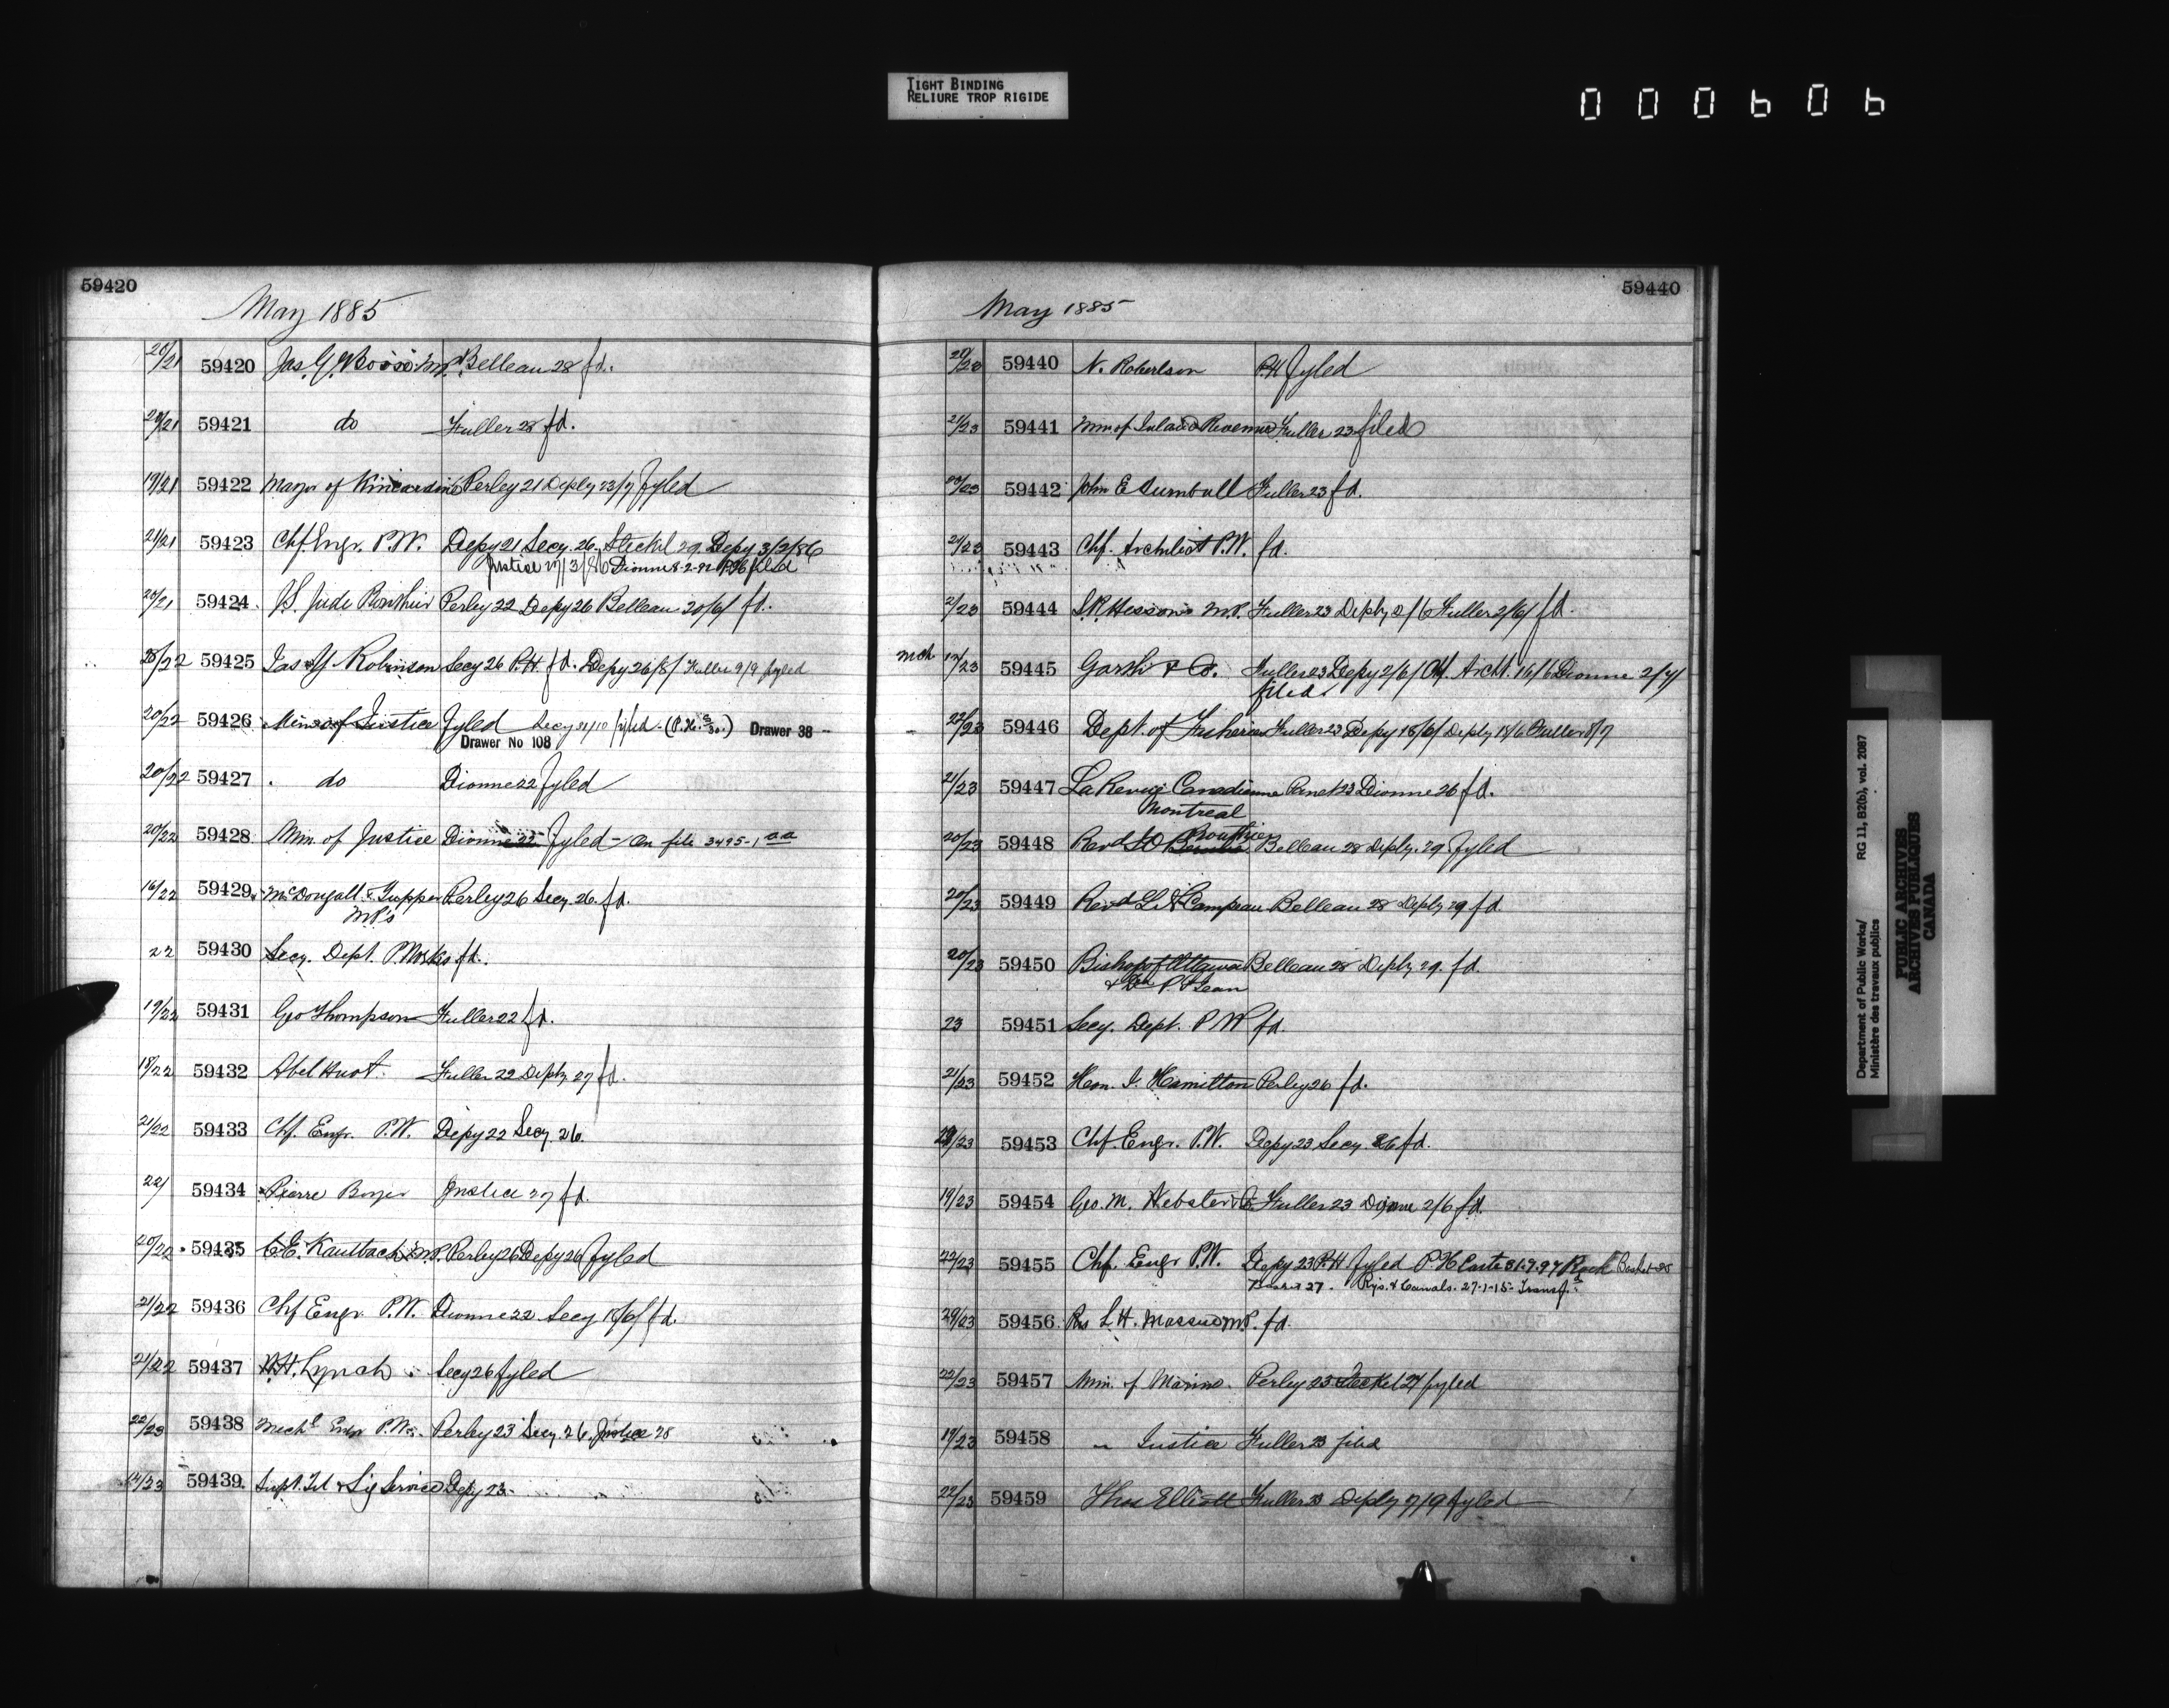 TIGHT BINDING
RELIURE TROP RIGIDE
000606
59420
May 1885
20/21 59420 Jas. G. Ross MP Belleau 28 fd.
20/21 59421 do Fuller 28 fd.
19/21 59422 Mayor of Kincardine Perley 21 Deply 23/7 fyled
21/21 59423 Chf. Engr. P.W. Depy 21 Secy. 26. Steckel 29. Depy 3/2/86
Justice 17/3/86 Dionne 8-2-92 filed
20/21 59424 J.S. Jude Perley 22 Depy 26 Belleau 30/6/ fd.
22 59425 Jas Y. Robinson Secy 26 P.H. fd. Depy 26/8/ Fuller 9/9 fyled
20/22 59426 Min. of Justice Fyled Secy 31/10 fyled - (P.H. 3/30.) Drawer 38 -
Drawer No 108
20/22 59427 do Dionne 22 fyled
20/22 59428 Min. of Justice Dionne 22 Fyled - On file 3495-1 aa
16/22 59429 McDougall & Tupper Perley 26 Secy 26. fd.
MP's
22 59430 Secy. Dept. P. Works fd.
19/22 59431 Geo Thompson Fuller 22 fd.
18/22 59432 Abel Huot. Fuller 22 Deply 27 fd.
21/22 59433 Chf. Engr. P.W. Depy 22 Secy 26
22/ 59434 Pierre Boyer Justice 27 fd.
20/22 59435 C.E. Kaulbach M.P. Perley 26 Depy 26 fyled
21/22 59436 Chf Engr P.W. Dionne 22 Secy 18/6/ fd.
21/22 59437 W.H. Lynch Secy 26 fyled
22/23 59438 Mechl Engr P.W. Perley 23 Secy 26. Justice 28
14/23 59439. Supt. Tel & Sig Service Depy 23
59440
May 1885
20/23 59440 N. Robertson P.H fyled
21/23 59441 Min of Inland Revenue Fuller 23 filed
59442 John E Turnbull Fuller 23 fd.
21/23 59443 Chf. Architect P.W. fd.
2/23 59444 S.R. Hesson M.P. Fuller 23 Deply 2/6 Fuller 2/6/ fd.
Mch 12/23 59445 Garth & Co. Fuller 23 Depy 2/6/ Chf. Archt. 16/6 Dionne 2/7/
filed
22/23 59446 Dept. of Fisheries Fuller 23 Depy 18/6/ Deply 18/6 Fuller 8/7
21/23 59447 La Revue Canadienne Panet 23 Dionne 26 fd.
Montreal
Routhier
20/23 59448 Revd Belleau 28 Deply. 29. Fyled
20/23 59449 Revd L. A. Campeau Belleau 28 Deply 29 fd.
20/23 59450 Bishop of Ottawa Belleau 28 Deply 29. fd.
23 59451 Secy. Dept. P W fd.
21/23 59452 Hon. J. Hamilton Perley 26 fd.
/23 59453 Chf. Engr. P.W. Depy 23 Secy. 26 fd.
19/23 59454 Geo. M. Webster & Co. Fuller 23 Dionne 2/6 fd.
22/23 59455 Chf. Engr P.W. Depy 23 P.H fyled P.H Coste 31.7.97 Rack Basket 28
Basket 27. Rys. & Canals. 27-1-15- Transf.
20/23 59456 L. H. Massue MP. fd.
22/23 59457 Min. of Marine. Perley 23 Steckel 27 fyled
19/23 59458 " Justice Fuller 23 filed
22/23 59459 Thos Elliott Fuller 23 Deply 7/9 fyled
Department of Public Works/ RG 11, B2(b), vol. 2087
Ministère des travaux publics
PUBLIC ARCHIVES
ARCHIVES PUBLIQUES
CANADA